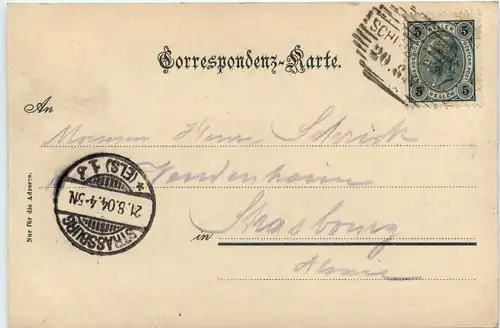 Correspondenz-Karte.
5 HELLER 5
SCHI
20.8
5 HELLER 5
An
Monsieur Henri Schrick
Vendenheim
STRASSBURG
(ELS) 1
21.8.04.4-5N.
in Strasbourg
Alsace
Nur für die Adresse.